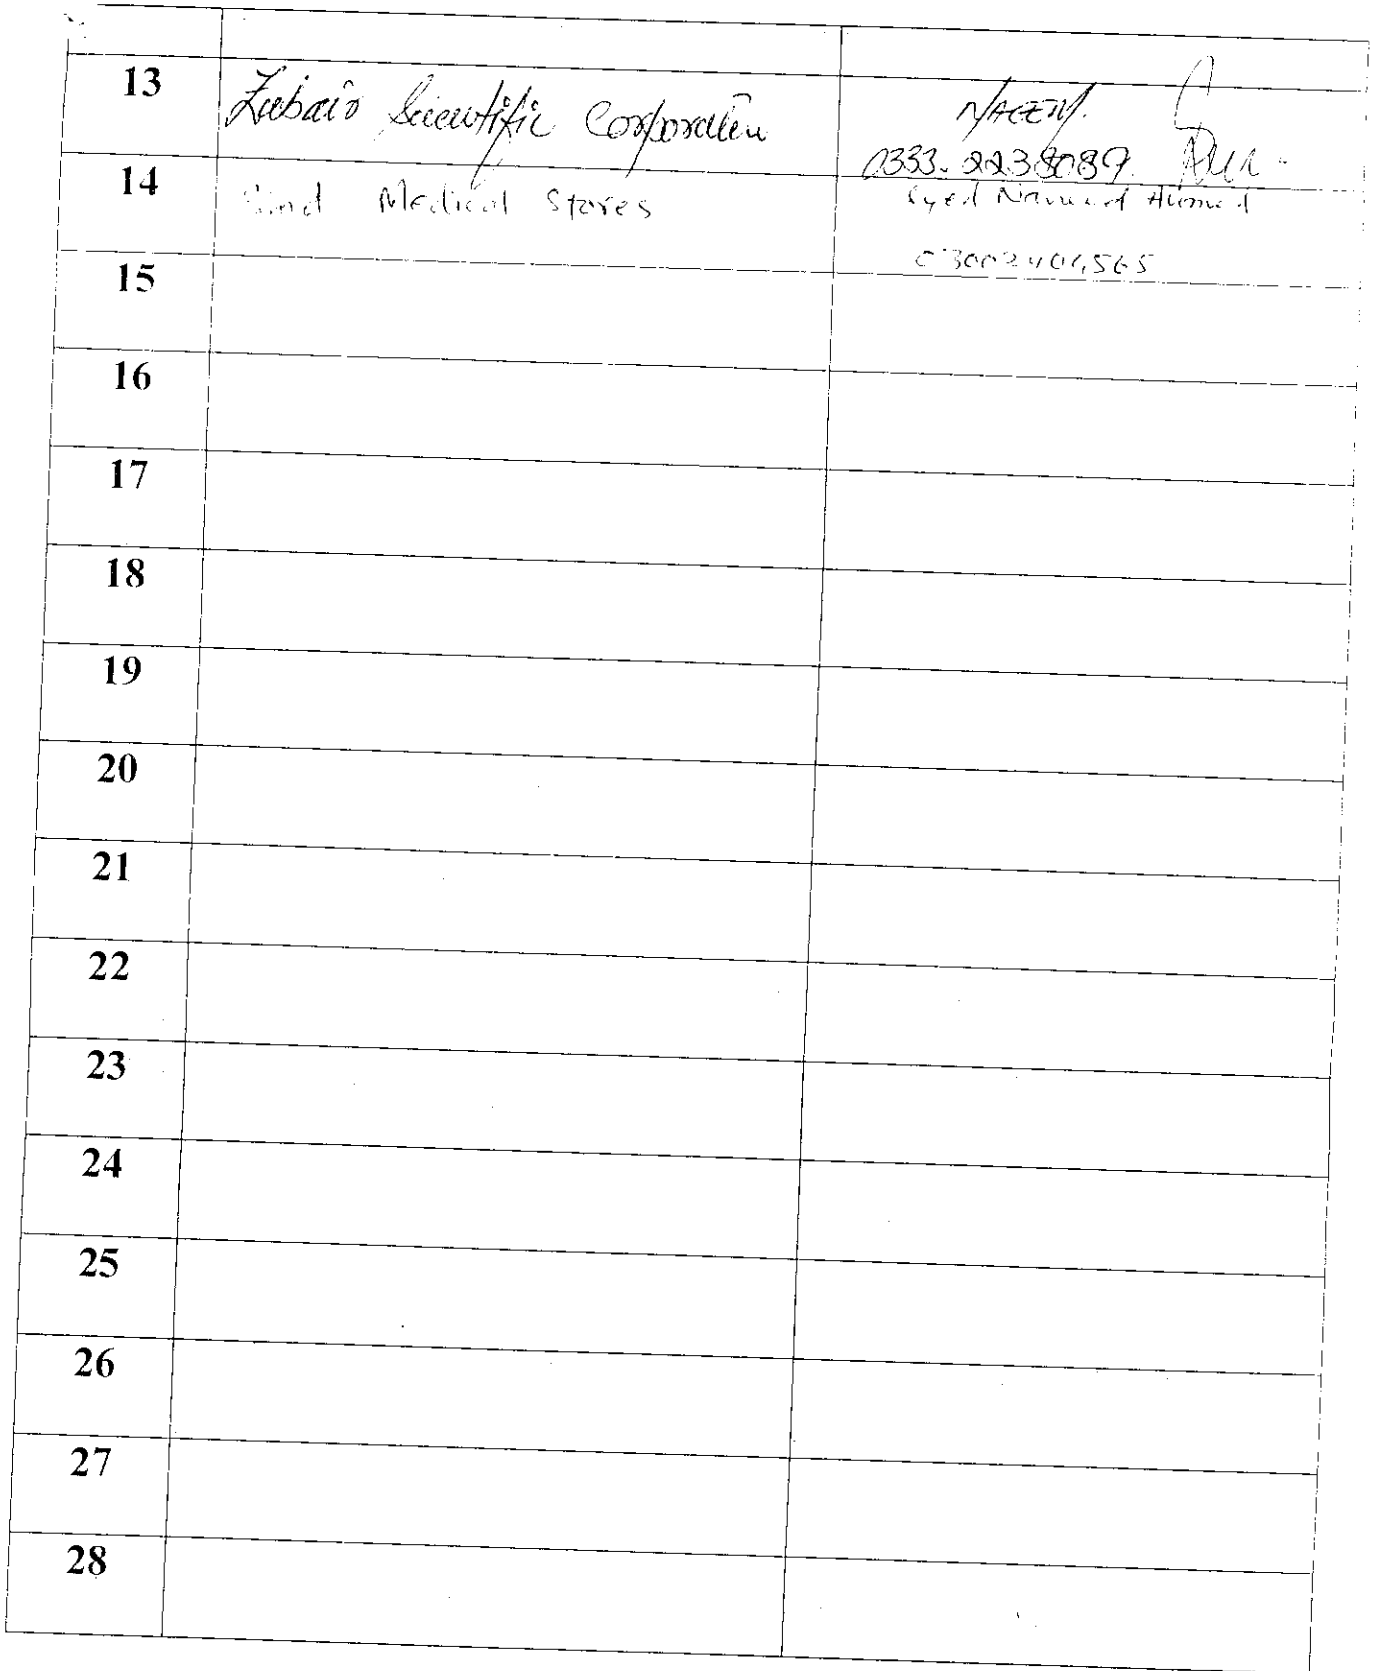 13 Zubair Scientific Corporation NAEEM.
0333-2238089
14 Sind Medical Stores Syed Ahmed
15
16
17
18
19
20
21
22
23
24
25
26
27
28